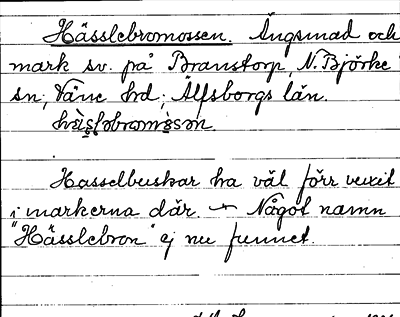 Hässlebromossen. Ängsmad och
mark sv. på Branstorp, N. Björke
sn, Väne hd, Älfsborgs län.
Hasselbuskar ha väl förr vuxit
i markerna där. — Något namn
"Hässlebron" ej nu funnet.